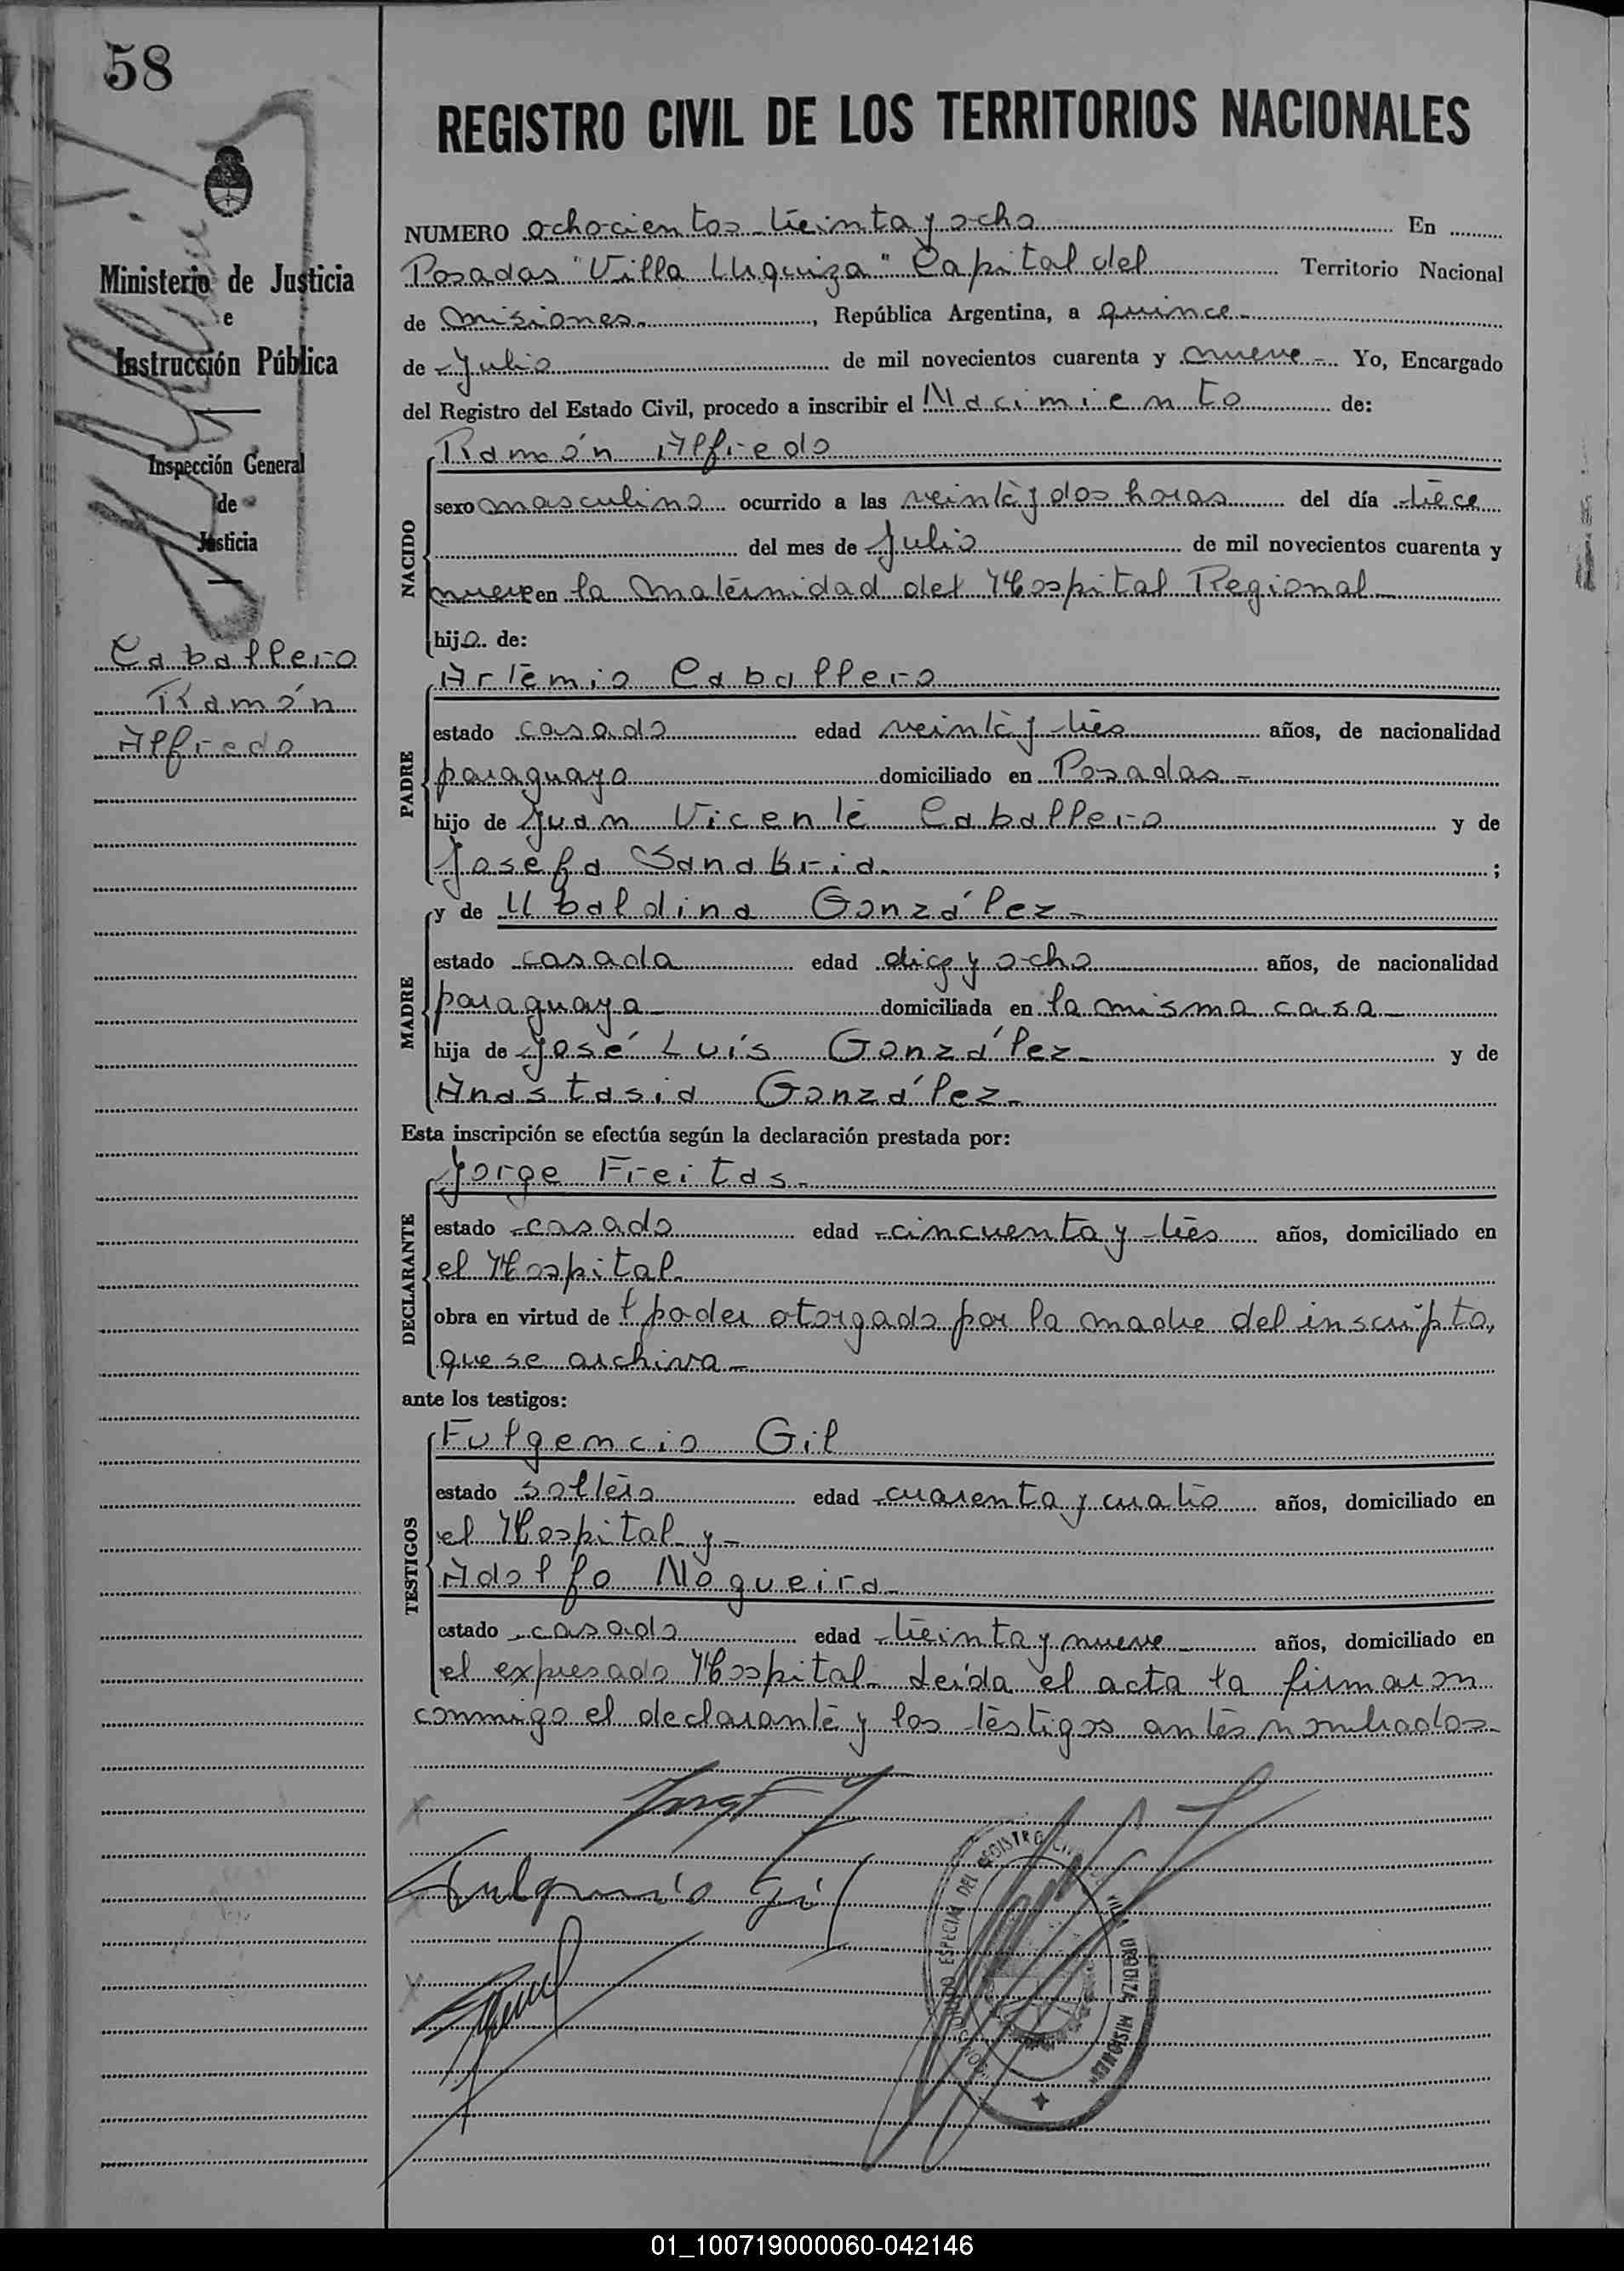 58
Ministerio de Justicia
e
Instrucción Pública
Inspección General
de
Justicia
Caballero
Ramón
Alfredo
REGISTRO CIVIL DE LOS TERRITORIOS NACIONALES
NUMERO ochocientos treinta y ocho En
Posadas "Villa Urquiza" Capital del Territorio Nacional
de Misiones.-, República Argentina, a quince-
de Julio de mil novecientos cuarenta y nueve- Yo, Encargado
del Registro del Estado Civil, procedo a inscribir el Nacimiento de:
NACIDO
Ramón Alfredo
sexo masculino ocurrido a las veinte y dos horas del día trece
del mes de Julio de mil novecientos cuarenta y
nueve en la Maternidad del Hospital Regional-
hijo de:
PADRE
Artemio Caballero
estado casado edad veinte y tres años, de nacionalidad
paraguaya domiciliado en Posadas-
hijo de Juan Vicente Caballero y de
Josefa Sanabria ;
MADRE
y de Ubaldina González-
estado casada edad diez y ocho años, de nacionalidad
paraguaya- domiciliada en la misma casa-
hija de José Luís González- y de
Anastasia González-
Esta inscripción se efectúa según la declaración prestada por:
DECLARANTE
Jorge Freitas-
estado casado edad cincuenta y tres años, domiciliado en
el Hospital-
obra en virtud de poder otorgado por la madre del inscripto,
que se archiva-
ante los testigos:
TESTIGOS
Fulgencio Gil
estado soltero edad cuarenta y cuatro años, domiciliado en
el Hospital y-
Adolfo Nogueira-
estado casado edad treinta y nueve- años, domiciliado en
el expresado Hospital- Leída el acta la firmaron
conmigo el declarante y los testigos antes nombrados-
Fulgencio Gil
ESPECIAL DEL REGISTRO CIVIL VILLA URQUIZA MISIONES
01_100719000060-042146